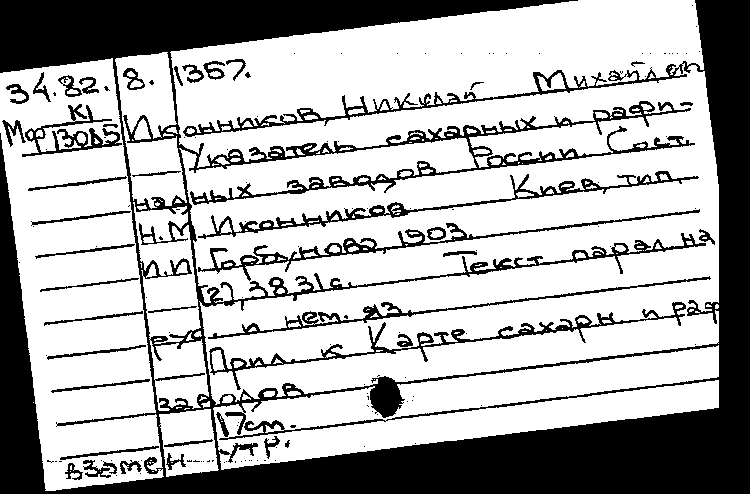 34.82.8.1357.
К1
Мор 130Δ5 Иконников, Николай Михайлов
Указатель сахарных и рафи-
надных заводов России. Сост.
Н.М. Иконников Киев, тип.
И.И. Горбунова, 1903.
[2], 38, 31 с. Текст парал на
рус. и нем. яз.
Прил. к Карте сахарн и раф
заводов.
17см.
взамен утр.